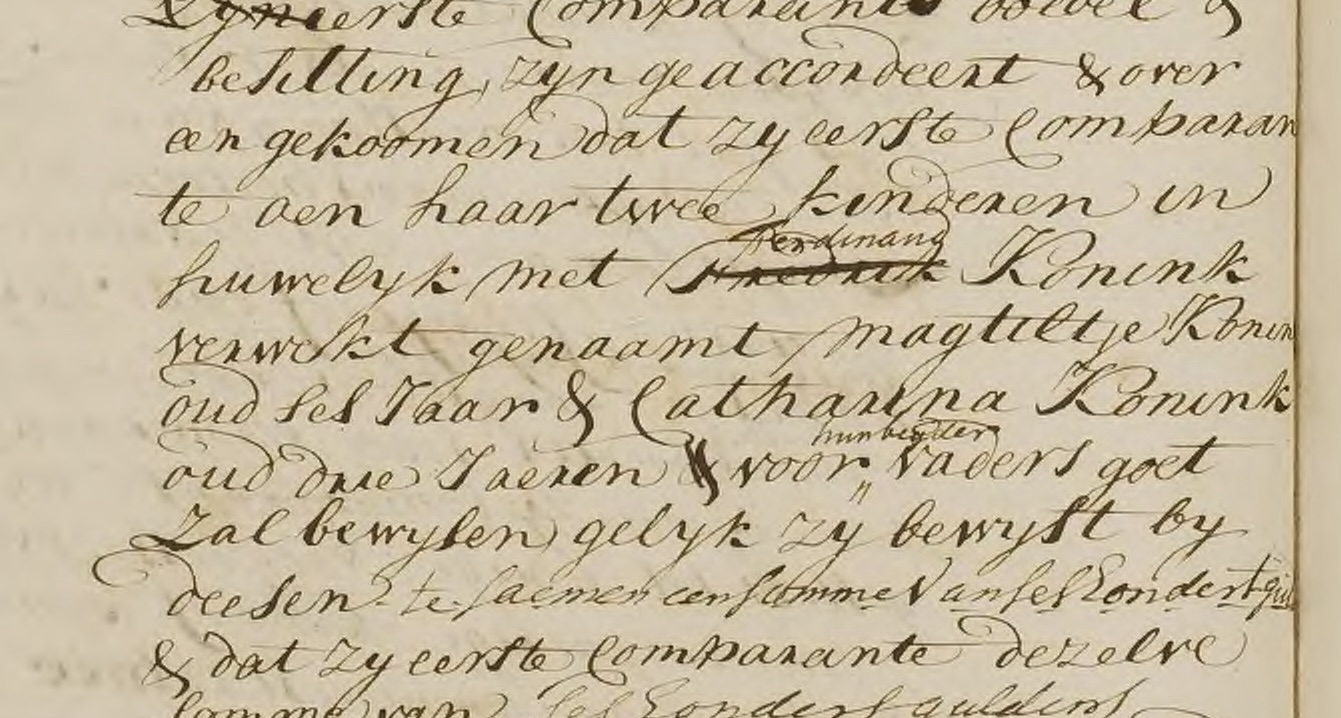 eerste Comparante boedel &
besitting, zyn geaccordeert & over
een gekoomen dat zy eerste Comparan
te aen haar twee kinderen in
Ferdinand
huwelyk met Fredrik Konink
verwekt genaamt Magteltje Konin
oud ses Jaar & Catharina Konink
hun beyder
oud drie Jaeren & voor vaders goet
zal bewysen gelyk zy bewyst by
deesen te saemen een somme van ses Hondert gul
& dat zy eerste Comparante dezelve
somme van ses Hondert guldens